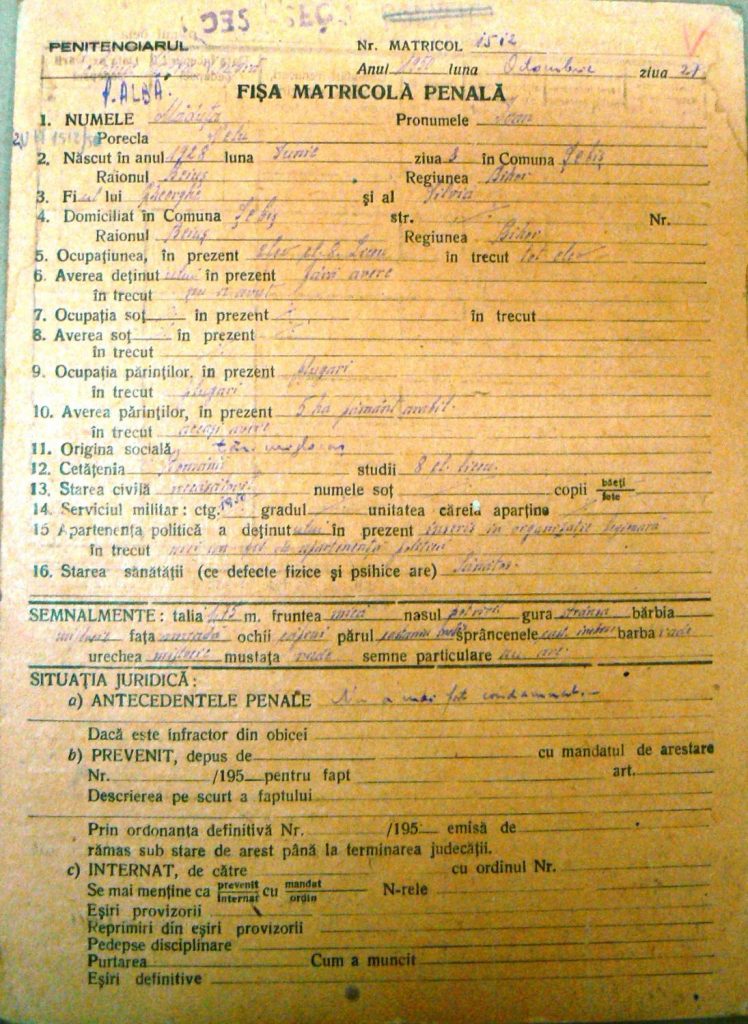 PENITENCIARUL Nr. MATRICOL 1512
Anul 1950 luna Octombrie ziua 27
P. ALBĂ.
FIŞA MATRICOLĂ PENALĂ
1. NUMELE Pronumele Ioan
Porecla
2. Născut în anul 1928 luna Iunie ziua în Comuna
Raionul Beiuş Regiunea Bihor
3. Fiul lui Gheorghe şi al Silvia
4. Domiciliat în Comuna str. Nr.
Raionul Beiuş Regiunea Bihor
5. Ocupaţiunea, în prezent elev cl. 8 Liceu în trecut tot elev
6. Averea deţinutului în prezent fără avere
în trecut nu a avut
7. Ocupaţia soţ în prezent în trecut
8. Averea soţ în prezent
în trecut
9. Ocupaţia părinţilor, în prezent plugari
în trecut plugari
10. Averea părinţilor, în prezent 5 ha pământ arabil.
în trecut aceaşi avere
11. Origina socială
12. Cetăţenia Română studii 8 cl. liceu.
13. Starea civilă necăsătorit numele soţ copii băeţi fete
14. Serviciul militar: ctg. 1950 gradul unitatea căreia aparţine
15 Apartenenţa politică a deţinutului în prezent înscris în organizaţie legionară
în trecut politică
16. Starea sănătăţii (ce defecte fizice şi psihice are) Sănătos.
SEMNALMENTE: talia 1,75 m. fruntea mică nasul potrivit gura bărbia
mijlocie faţa ochii căprui părul sprâncenele barba rade
urechea mijlocie mustaţa rade semne particulare nu are.
SITUAŢIA JURIDICĂ:
a) ANTECEDENTELE PENALE Nu a mai fost condamnat.
Dacă este infractor din obicei
b) PREVENIT, depus de cu mandatul de arestare
Nr. /195 pentru fapt art.
Descrierea pe scurt a faptului
Prin ordonanţa definitivă Nr. /195 emisă de
rămas sub stare de arest până la terminarea judecăţii.
c) INTERNAT, de către cu ordinul Nr.
Se mai menţine ca prevenit internat cu mandat ordin N-rele
Eşiri provizorii
Reprimiri din eşiri provizorii
Pedepse disciplinare
Purtarea Cum a muncit
Eşiri definitive